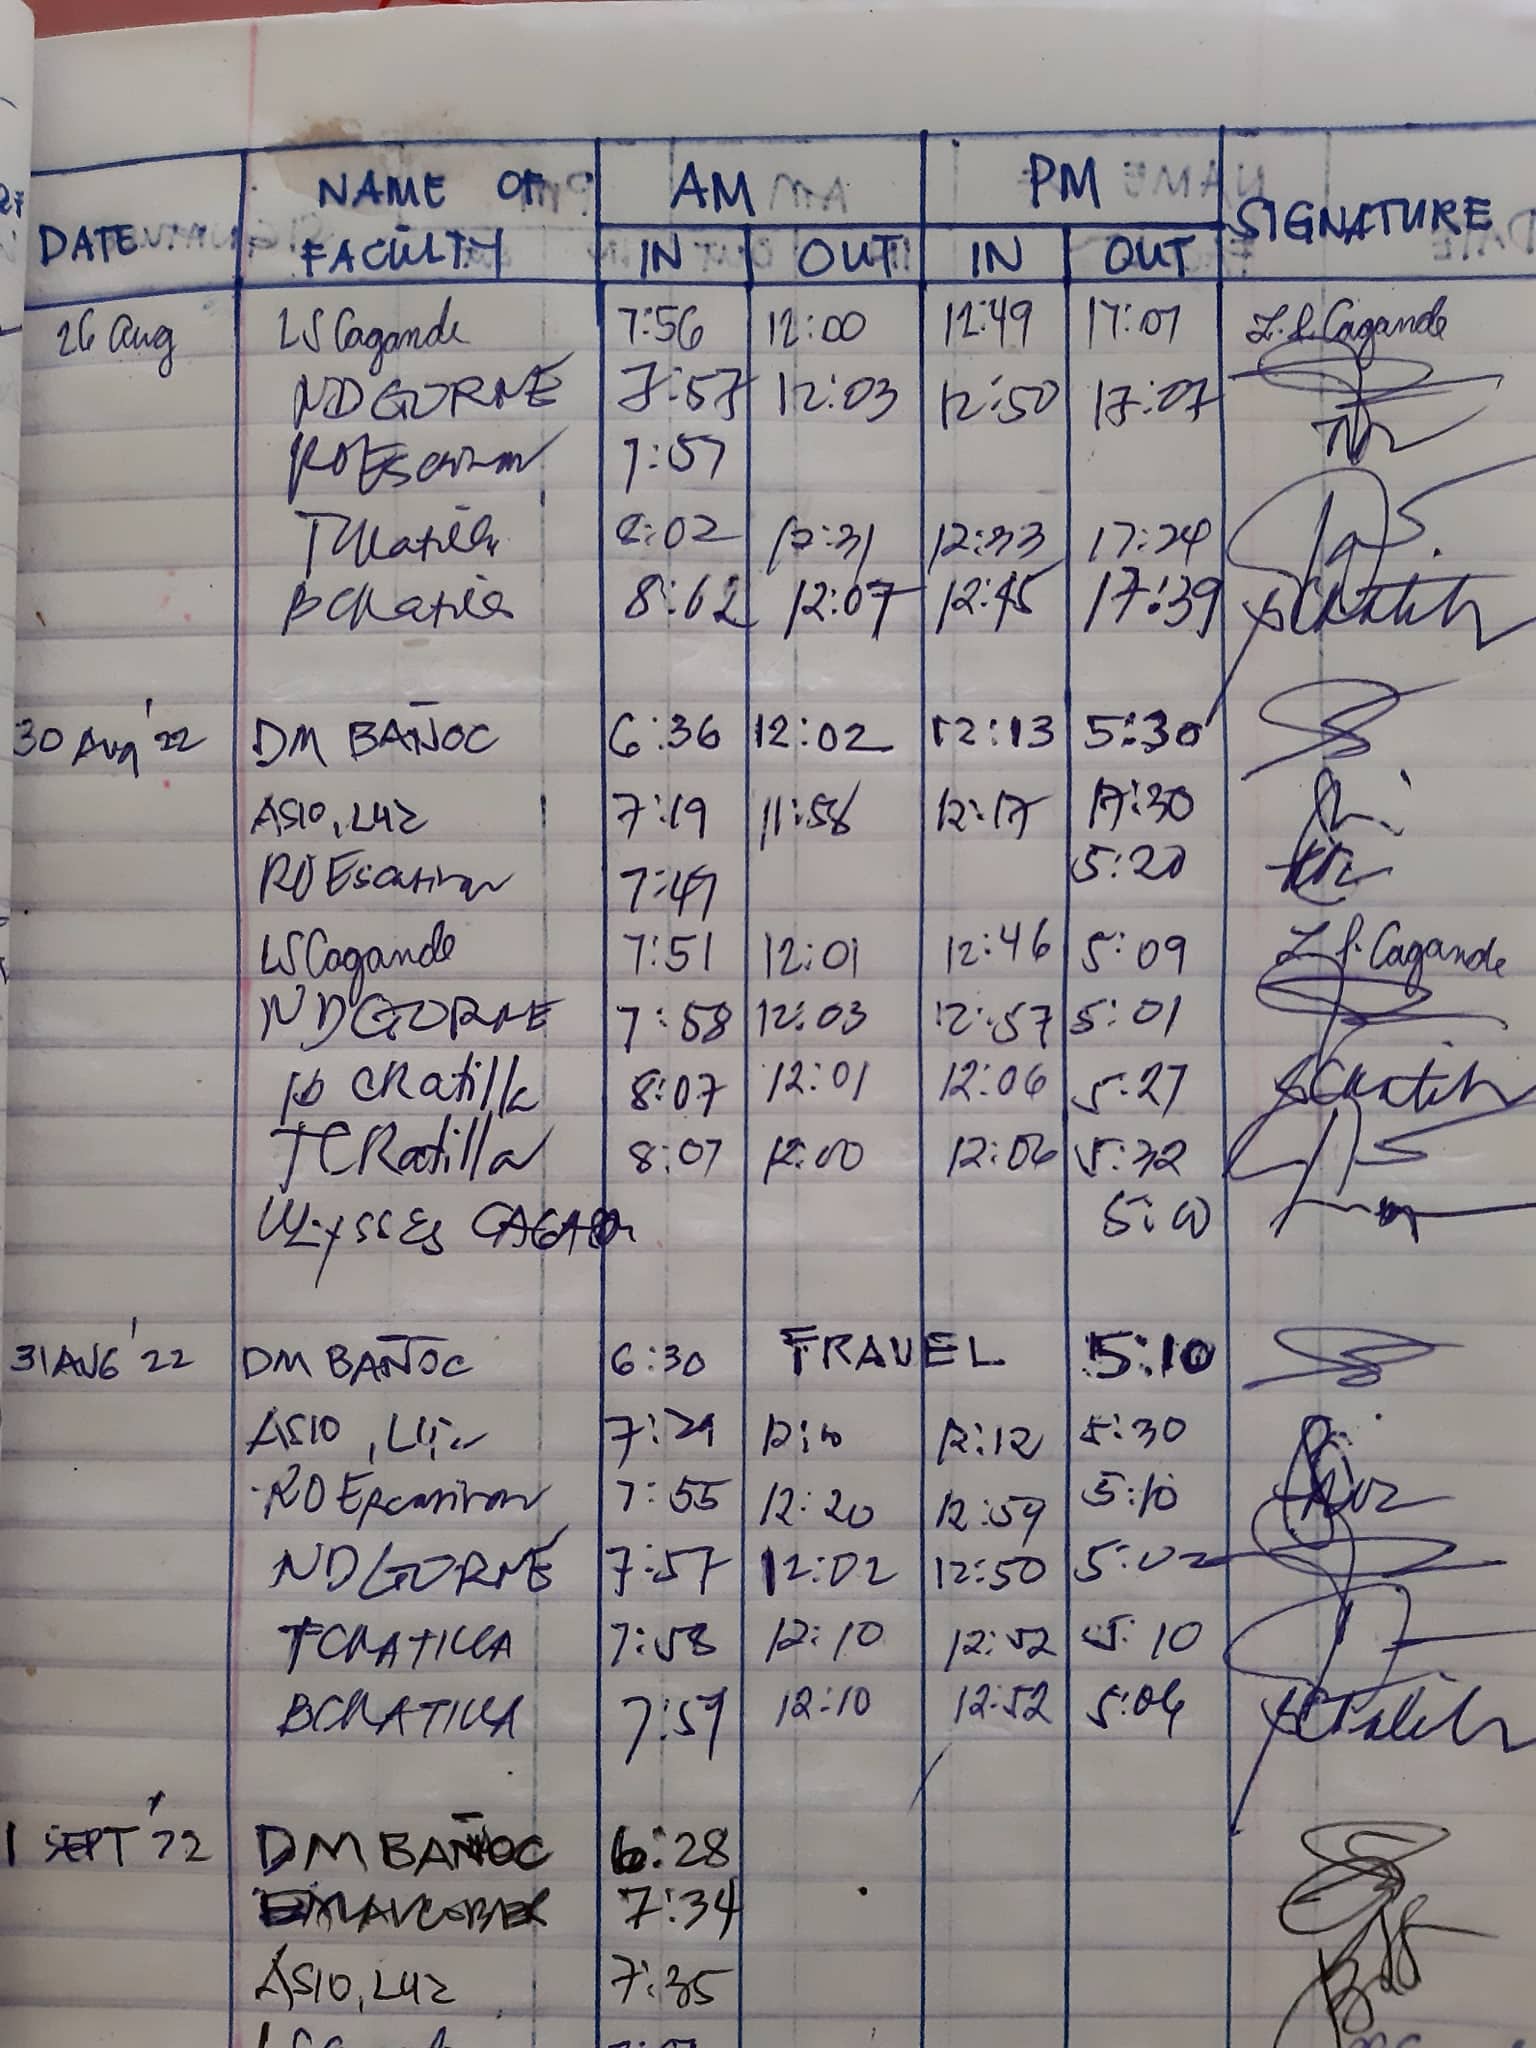 DATE NAME OF FACULTY AM PM SIGNATURE
IN OUT IN OUT
26 Aug LSCagande 7:56 12:00 12:49 17:07 L.S. Cagande
NDGORNE 7:57 12:03 12:50 17:07
7:57
8:02 12:31 12:33 17:24
12:07 12:45 17:39
30 Aug '22 DM BAÑOC 6:36 12:02 12:13 5:30
ASIO, LUZ 7:19 11:58 12:17 17:30
7:49 5:20
LSCagande 7:51 12:01 12:46 5:09 L.S. Cagande
NDGORNE 7:58 12:03 12:57 5:01
CRatilla 8:07 12:01 12:06 5:27
TCRatilla 8:07 12:00 12:06 5:32
ULYSSES
31 AUG '22 DM BAÑOC 6:30 TRAVEL 5:10
ASIO, 12:12 5:30
7:55 12:20 12:59 5:10
NDGORNE 7:57 12:02 12:50 5:02
TCRATILLA 7:58 12:10 12:52 5:10
BCRATILLA 7:59 12:10 12:52 5:06
1 SEPT '22 DM BAÑOC 6:28
7:34
ASIO, LUZ 7:35